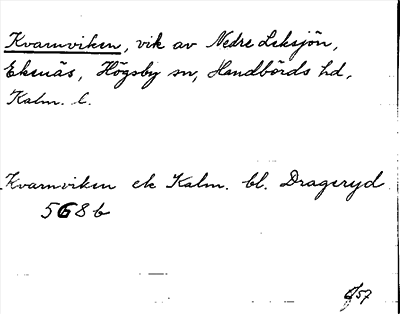 Kvarnviken, vik av Nedre Leksjön,
Ekenäs, Högsby sn, Handbörds hd,
Kalm. l.
Kvarnviken ek Kalm. bl. Drageryd
5G8b
57